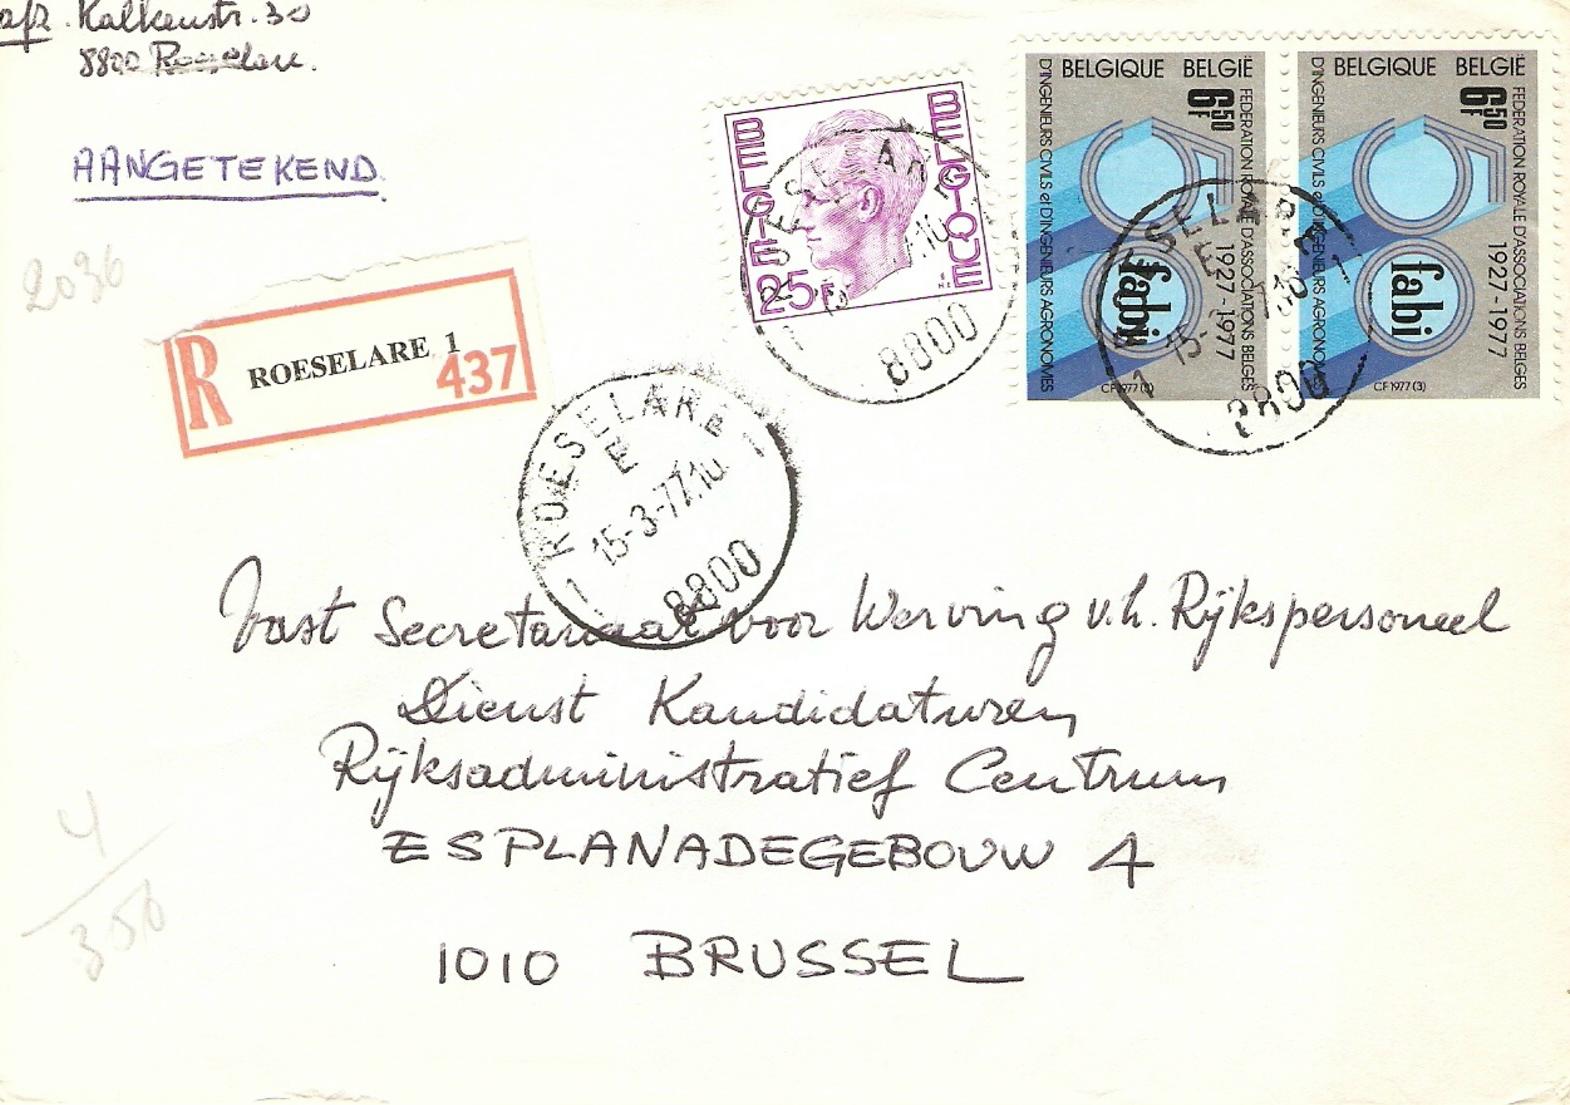 afz. Kalkenstr. 30
8800 Roeselare.
AANGETEKEND
2036
R ROESELARE 1
437
BELGIE BELGIQUE
25F
BELGIQUE BELGIË
6F50
FEDERATION ROYALE D'ASSOCIATIONS BELGES
D'INGENIEURS CIVILS et D'INGENIEURS AGRONOMES
1927-1977
fabi
CF 1977 (3)
BELGIQUE BELGIË
6F50
FEDERATION ROYALE D'ASSOCIATIONS BELGES
D'INGENIEURS CIVILS et D'INGENIEURS AGRONOMES
1927-1977
fabi
CF 1977 (3)
ROESELARE 1
8800
ROESELARE 1
8800
1 ROESELARE 1
E
15-3-77.10
8800
Vast Secretariaat voor Werving v.h. Rijkspersoneel
Dienst Kandidaturen
Rijksadministratief Centrum
ESPLANADEGEBOUW 4
1010 BRUSSEL
4
350